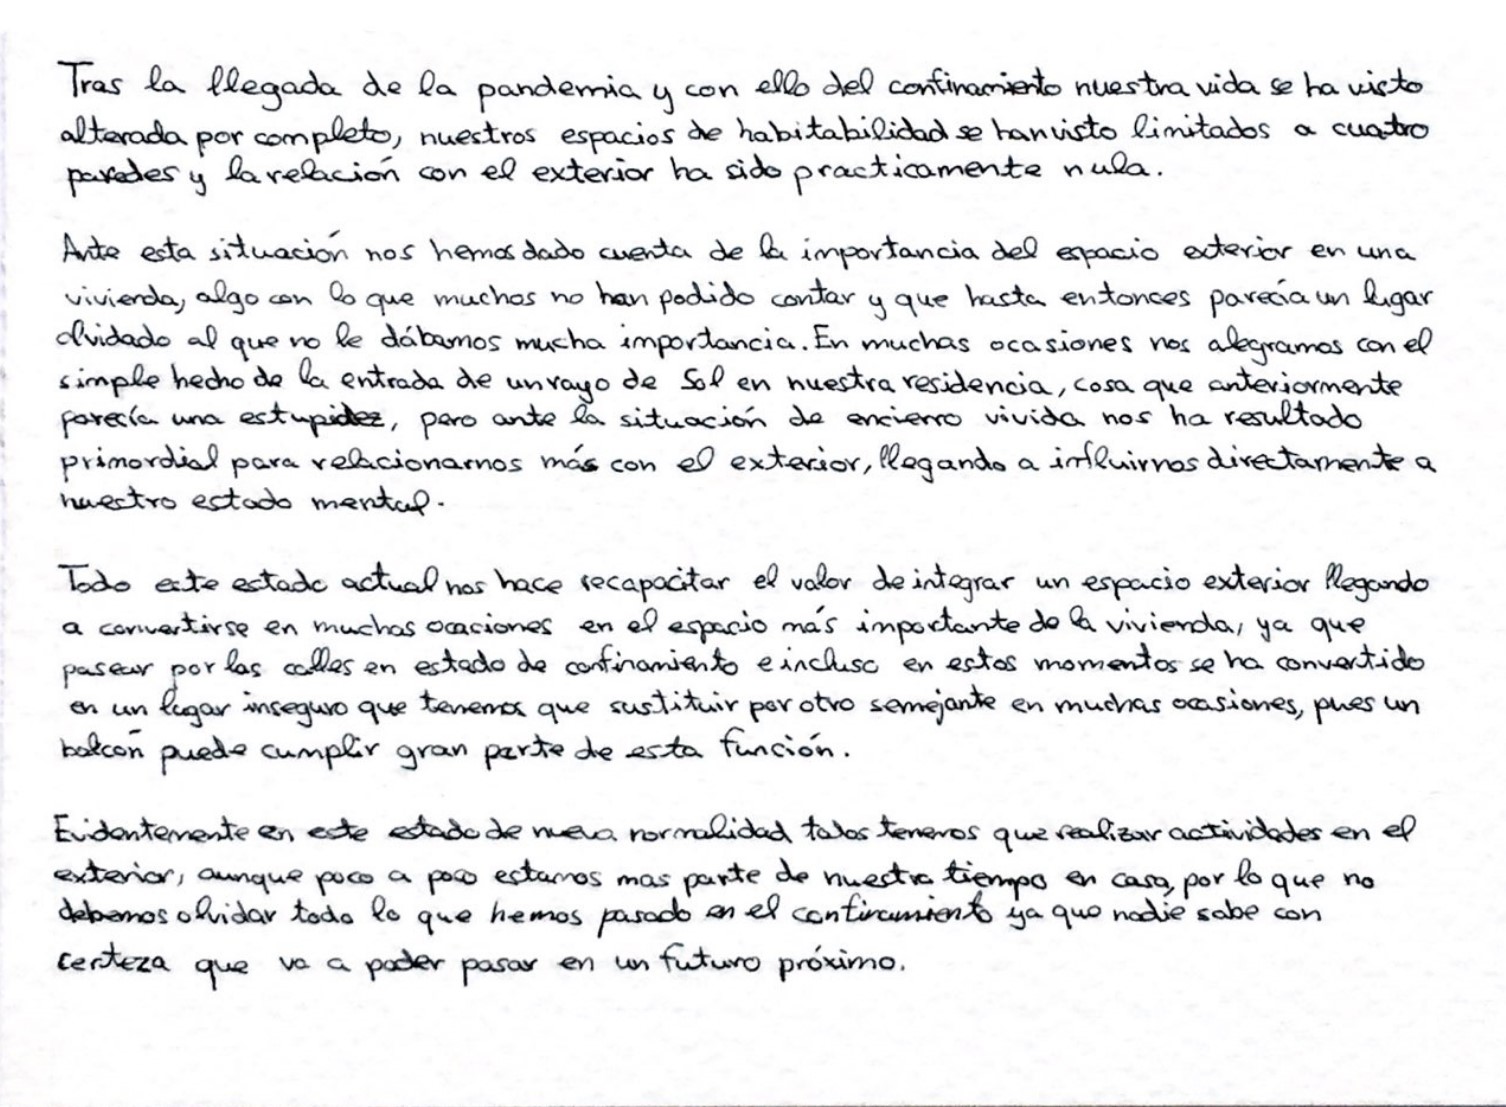 Tras la llegada de la pandemia y con ello del confinamiento nuestra vida se ha visto
alterada por completo, nuestros espacios de habitabilidad se han visto limitados a cuatro
paredes y la relación con el exterior ha sido practicamente nula.
Ante esta situación nos hemos dado cuenta de la importancia del espacio exterior en una
vivienda, algo con lo que muchos no han podido contar y que hasta entonces parecía un lugar
olvidado al que no le dábamos mucha importancia. En muchas ocasiones nos alegramos con el
simple hecho de la entrada de un rayo de Sol en nuestra residencia, cosa que anteriormente
parecía una estupidez, pero ante la situación de encierro vivida nos ha resultado
primordial para relacionarnos más con el exterior, llegando a influirnos directamente a
nuestro estado mental.
Todo este estado actual nos hace recapacitar el valor de integrar un espacio exterior llegando
a convertirse en muchas ocaciones en el espacio más importante de la vivienda, ya que
pasear por las calles en estado de confinamiento e incluso en estos momentos se ha convertido
en un lugar inseguro que tenemos que sustituir por otro semejante en muchas ocasiones, pues un
balcón puede cumplir gran parte de esta función.
Evidentemente en este estado de nueva normalidad todos tenemos que realizar actividades en el
exterior, aunque poco a poco estamos mas parte de nuestro tiempo en casa, por lo que no
debemos olvidar todo lo que hemos pasado en el confinamiento ya que nadie sabe con
certeza que va a poder pasar en un futuro próximo.